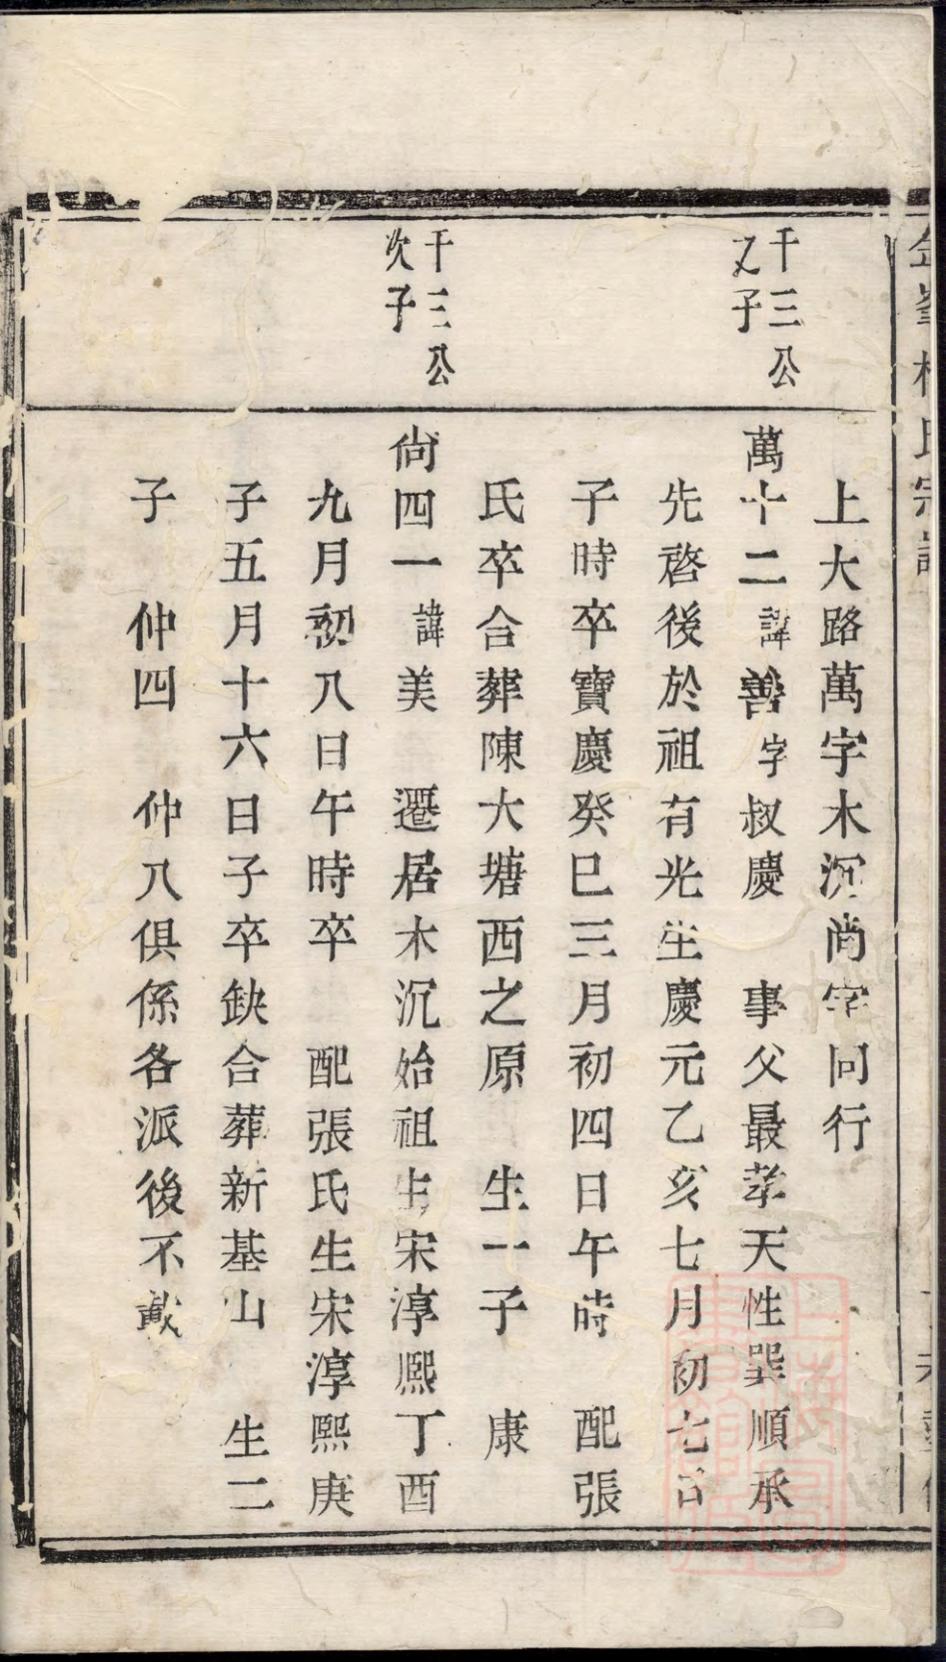 上大路萬字木沉尚字同行
千三公
又子
萬十二諱善字叔慶　事父最孝天性巽順承
先啓後於祖有光生慶元乙亥七月初七日
子時卒寶慶癸巳三月初四日午時　配張
氏卒合葬陳大塘西之原　生一子　康
千三公
次子
尙四一諱美　遷居木沉始祖生宋淳熙丁酉
九月初八日午時卒　配張氏生宋淳熙庚
子五月十六日子卒缺合葬新基山　生二
子　仲四　仲八俱係各派後不載